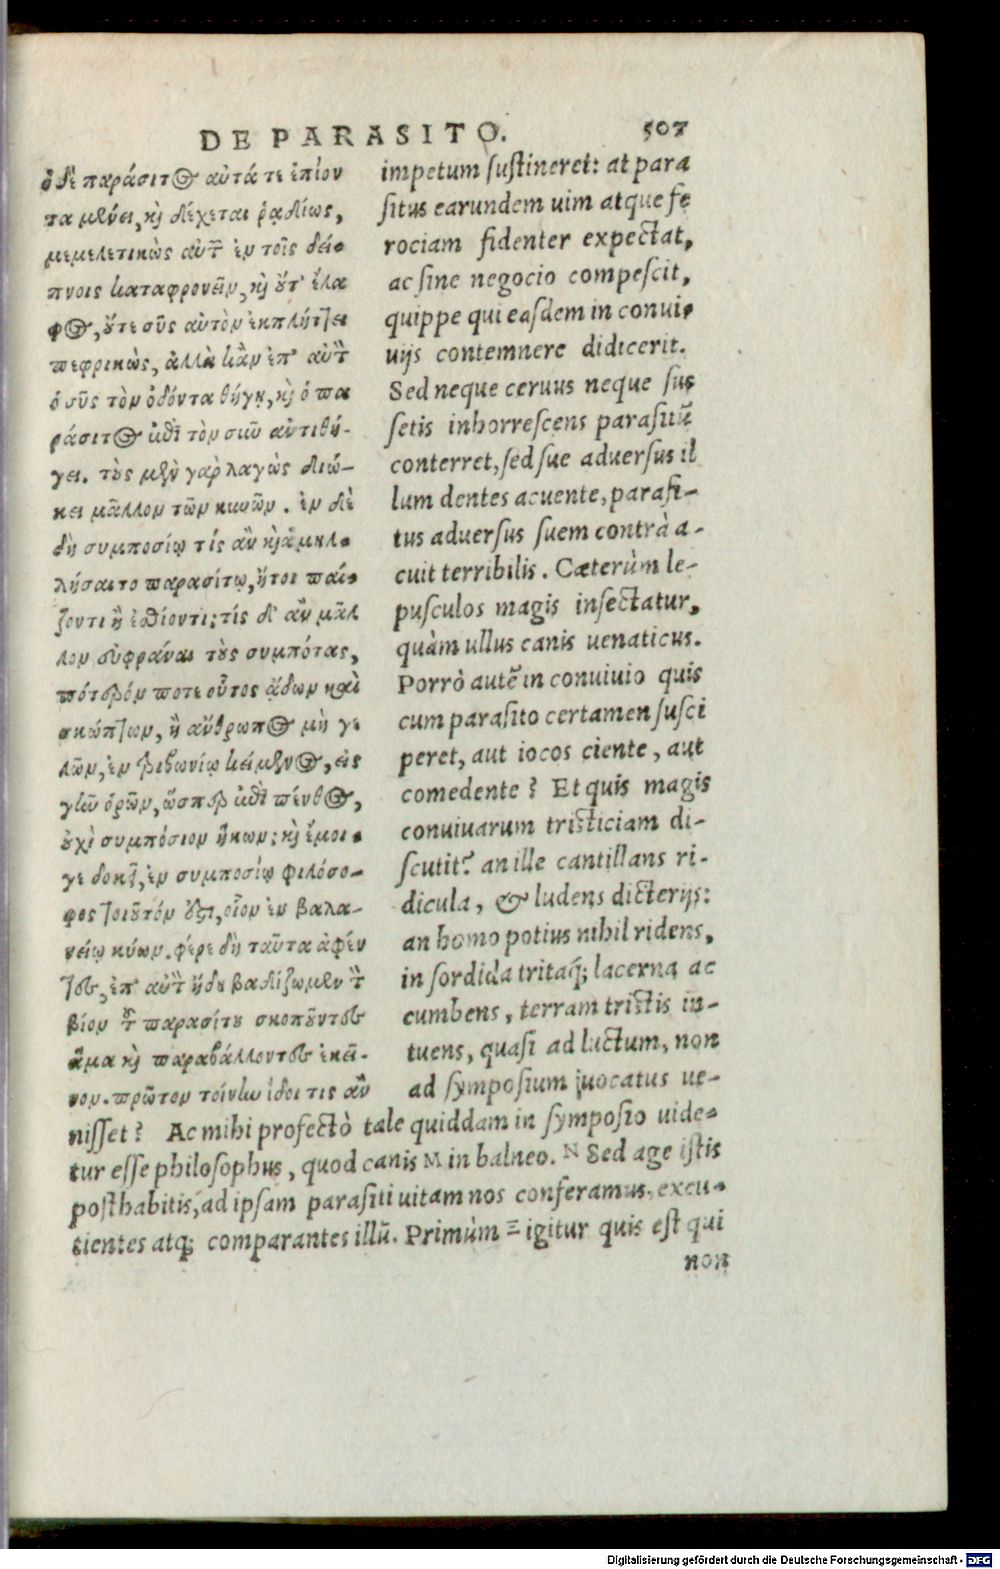 DE PARASITO. 507
ὁ δὲ παράσιτος αὐτά τε ἐπίον
τα μένει, καὶ δέχεται ῥᾳδίως,
μεμελετικὼς αὐτῶν ἐν τοῖς δεί-
πνοις καταφρονεῖν, καὶ οὔτ' ἔλα
φος, οὔτε σῦς αὐτὸν ἐκπλήττει
πεφρικὼς, ἀλλὰ κἂν ἐπ' αὐτὸν
ὁ σῦς τὸν ὀδόντα θήγῃ, καὶ ὁ πα
ράσιτος ἐπὶ τὸν σιῶ ἀντιθή-
γει. τοὺς μὲν γὰρ λαγὼς διώ-
κει μᾶλλον τῶν κυνῶν. ἐν δὲ
δὴ συμποσίῳ τίς ἂν καὶ ἁμιλ-
λήσαιτο παρασίτῳ, ἤτοι παί-
ζοντι ἢ ἐσθίοντι; τίς δ' ἂν μᾶλ
λον εὐφράναι τοὺς συμπότας,
πότερόν ποτε οὗτος ᾄδων καὶ
σκώπτων, ἢ ἄνθρωπος μὴ γε
λῶν, ἐν τριβωνίῳ κείμενος, εἰς
γῆν ὁρῶν, ὥσπερ ἐπὶ πένθος,
οὐχὶ συμπόσιον ἥκων; καὶ ἔμοι-
γε δοκεῖ, ἐν συμποσίῳ φιλόσο-
φος τοιοῦτόν ἐστι, οἷον ἐν βαλα-
νείῳ κύων. φέρε δὴ ταῦτα ἀφέν
τες, ἐπ' αὐτὸν ἤδη βαδίζωμεν τὸν
βίον τοῦ παρασίτου σκοποῦντες
ἅμα καὶ παραβάλλοντες ἐκεῖ-
νον. πρῶτον τοίνυν ἴδοι τις ἂν
impetum sustineret: at para
situs earundem uim atque fe
rociam fidenter expectat,
ac sine negocio compescit,
quippe qui easdem in conui-
uijs contemnere didicerit.
Sed neque ceruus neque sus
setis inhorrescens parasitū
conterret, sed sue aduersus il
lum dentes acuente, parasi-
tus aduersus suem contrà a-
cuit terribilis. Cæterùm le-
pusculos magis insectatur,
quàm ullus canis uenaticus.
Porrò autē in conuiuio quis
cum parasito certamen susci
peret, aut iocos ciente, aut
comedente? Et quis magis
conuiuarum tristiciam di-
scutit? an ille cantillans ri-
dicula, & ludens dicterijs:
an homo potius nihil ridens,
in sordida tritaq; lacerna ac
cumbens, terram tristis in-
tuens, quasi ad luctum, non
ad symposium iuocatus ue-
nisset? Ac mihi profectò tale quiddam in symposio uide-
tur esse philosophus, quod canis M in balneo. N Sed age istis
posthabitis, ad ipsam parasiti uitam nos conferamus, excu-
tientes atq; comparantes illū. Primùm Ξ igitur quis est qui
non
Digitalisierung gefördert durch die Deutsche Forschungsgemeinschaft - DFG